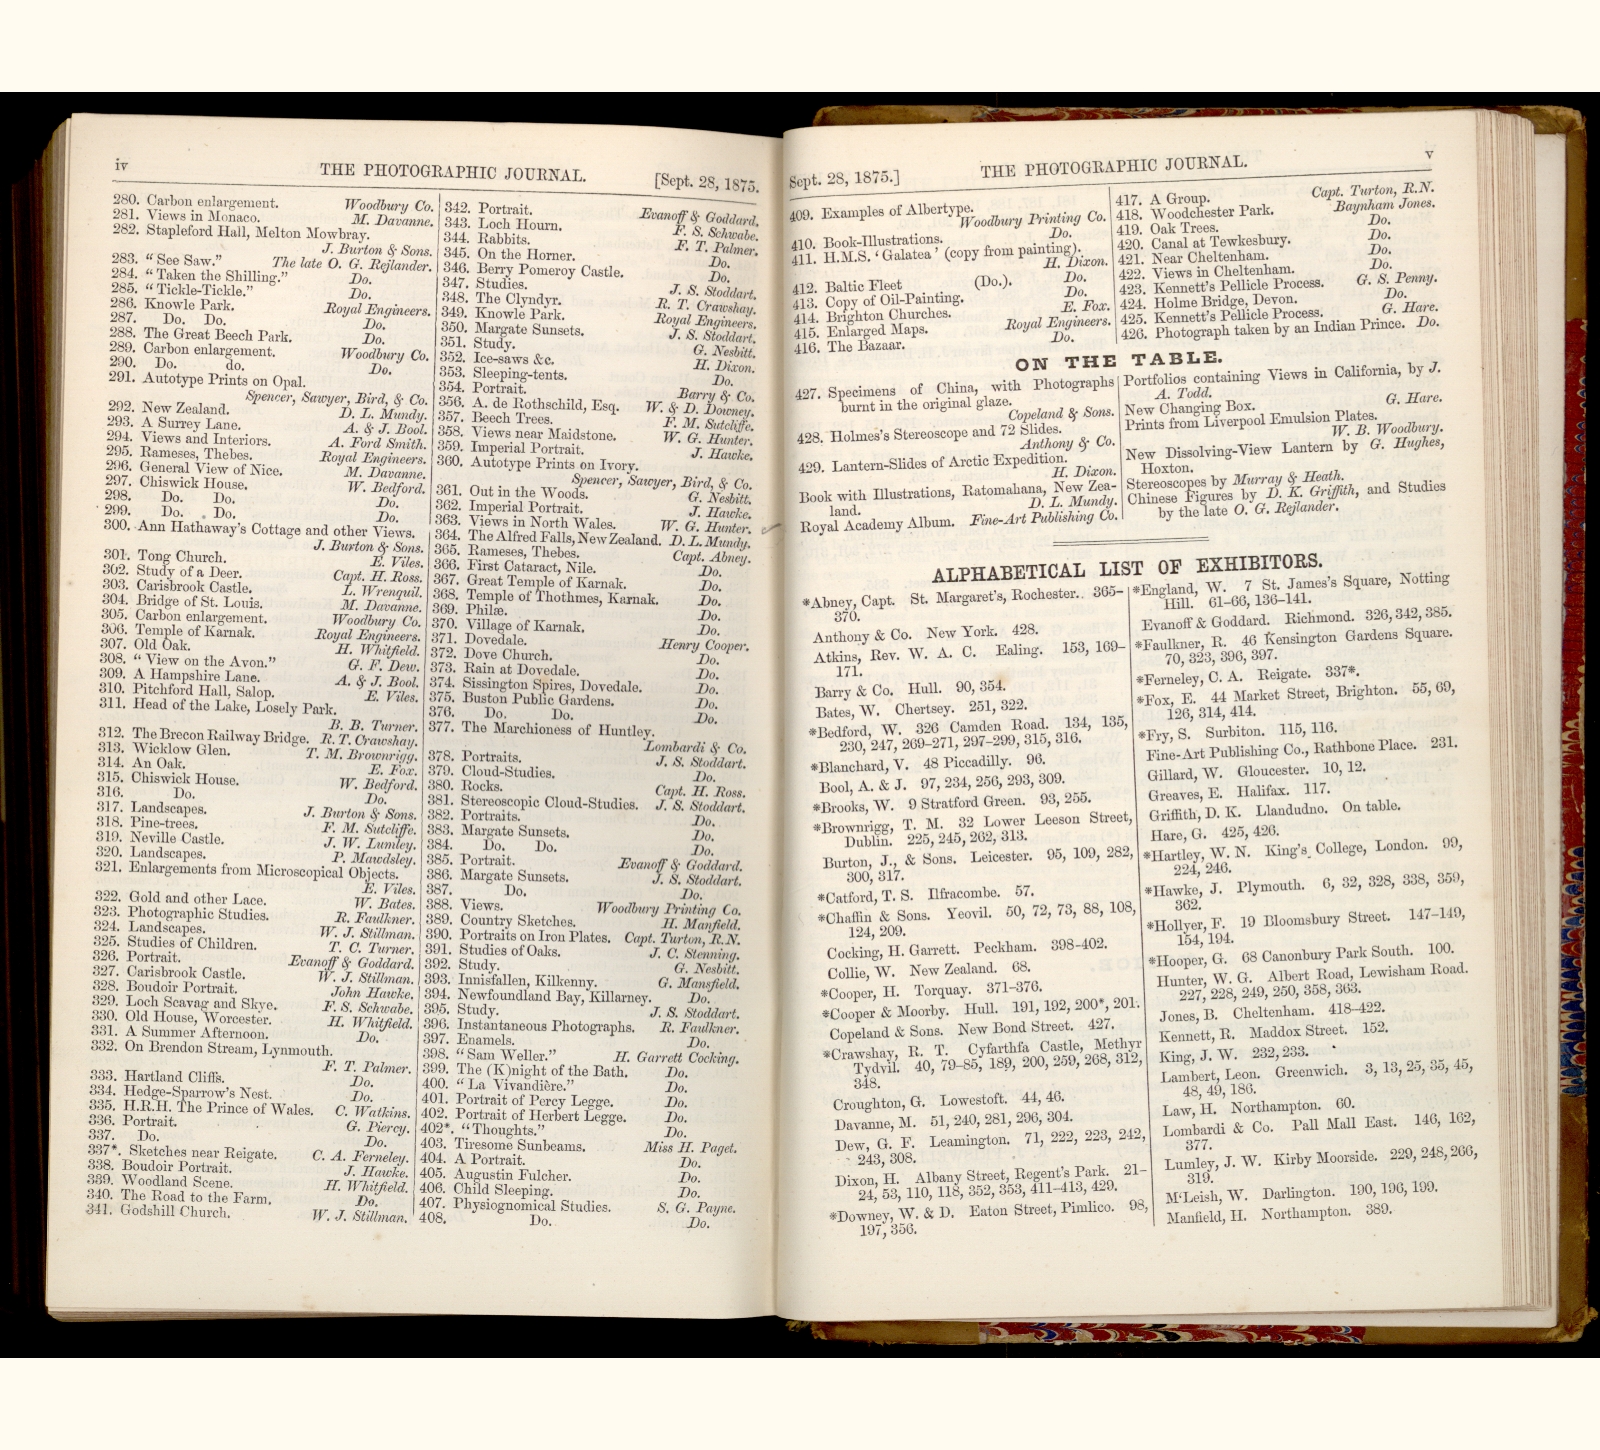 iv
THE PHOTOGRAPHIC JOURNAL.
[Sept. 28, 1875.
280. Carbon enlargement. Woodbury Co.
281. Views in Monaco. M. Davanne.
282. Stapleford Hall, Melton Mowbray.
J. Burton & Sons.
283. “See Saw.” The late O. G. Rejlander.
284. “Taken the Shilling.” Do.
285. “Tickle-Tickle.” Do.
286. Knowle Park. Royal Engineers.
287. Do. Do. Do.
288. The Great Beech Park. Do.
289. Carbon enlargement. Woodbury Co.
290. Do. do. Do.
291. Autotype Prints on Opal.
Spencer, Sawyer, Bird, & Co.
292. New Zealand. D. L. Mundy.
293. A Surrey Lane. A. & J. Bool.
294. Views and Interiors. A. Ford Smith.
295. Rameses, Thebes. Royal Engineers.
296. General View of Nice. M. Davanne.
297. Chiswick House. W. Bedford.
298. Do. Do. Do.
299. Do. Do. Do.
300. Ann Hathaway's Cottage and other Views.
J. Burton & Sons.
301. Tong Church. E. Viles.
302. Study of a Deer. Capt. H. Ross.
303. Carisbrook Castle. L. Wrenquil.
304. Bridge of St. Louis. M. Davanne.
305. Carbon enlargement. Woodbury Co.
306. Temple of Karnak. Royal Engineers.
307. Old Oak. H. Whitfield.
308. “View on the Avon.” G. F. Dew.
309. A Hampshire Lane. A. & J. Bool.
310. Pitchford Hall, Salop. E. Viles.
311. Head of the Lake, Losely Park.
B. B. Turner.
312. The Brecon Railway Bridge. R. T. Crawshay.
313. Wicklow Glen. T. M. Brownrigg.
314. An Oak. E. Fox.
315. Chiswick House. W. Bedford.
316. Do. Do.
317. Landscapes. J. Burton & Sons.
318. Pine-trees. F. M. Sutcliffe.
319. Neville Castle. J. W. Lumley.
320. Landscapes. P. Mawdsley.
321. Enlargements from Microscopical Objects.
E. Viles.
322. Gold and other Lace. W. Bates.
323. Photographic Studies. R. Faulkner.
324. Landscapes. W. J. Stillman.
325. Studies of Children. T. C. Turner.
326. Portrait. Evanoff & Goddard.
327. Carisbrook Castle. W. J. Stillman.
328. Boudoir Portrait. John Hawke.
329. Loch Scavag and Skye. F. S. Schwabe.
330. Old House, Worcester. H. Whitfield.
331. A Summer Afternoon. Do.
332. On Brendon Stream, Lynmouth.
F. T. Palmer.
333. Hartland Cliffs. Do.
334. Hedge-Sparrow's Nest. Do.
335. H.R.H. The Prince of Wales. C. Watkins.
336. Portrait. G. Piercy.
337. Do. Do.
337*. Sketches near Reigate. C. A. Ferneley.
338. Boudoir Portrait. J. Hawke.
339. Woodland Scene. H. Whitfield.
340. The Road to the Farm. Do.
341. Godshill Church. W. J. Stillman.
342. Portrait. Evanoff & Goddard.
343. Loch Hourn. F. S. Schwabe.
344. Rabbits. F. T. Palmer.
345. On the Horner. Do.
346. Berry Pomeroy Castle. Do.
347. Studies. J. S. Stoddart.
348. The Clyndyr. R. T. Crawshay.
349. Knowle Park. Royal Engineers.
350. Margate Sunsets. J. S. Stoddart.
351. Study. G. Nesbitt.
352. Ice-saws &c. H. Dixon.
353. Sleeping-tents. Do.
354. Portrait. Barry & Co.
356. A. de Rothschild, Esq. W. & D. Downey.
357. Beech Trees. F. M. Sutcliffe.
358. Views near Maidstone. W. G. Hunter.
359. Imperial Portrait. J. Hawke.
360. Autotype Prints on Ivory.
Spencer, Sawyer, Bird, & Co.
361. Out in the Woods. G. Nesbitt.
362. Imperial Portrait. J. Hawke.
363. Views in North Wales. W. G. Hunter.
364. The Alfred Falls, New Zealand. D. L. Mundy.
365. Rameses, Thebes. Capt. Abney.
366. First Cataract, Nile. Do.
367. Great Temple of Karnak. Do.
368. Temple of Thothmes, Karnak. Do.
369. Philæ. Do.
370. Village of Karnak. Do.
371. Dovedale. Henry Cooper.
372. Dove Church. Do.
373. Rain at Dovedale. Do.
374. Sissington Spires, Dovedale. Do.
375. Buston Public Gardens. Do.
376. Do. Do. Do.
377. The Marchioness of Huntley.
Lombardi & Co.
378. Portraits. J. S. Stoddart.
379. Cloud-Studies. Do.
380. Rocks. Capt. H. Ross.
381. Stereoscopic Cloud-Studies. J. S. Stoddart.
382. Portraits. Do.
383. Margate Sunsets. Do.
384. Do. Do. Do.
385. Portrait. Evanoff & Goddard.
386. Margate Sunsets. J. S. Stoddart.
387. Do. Do.
388. Views. Woodbury Printing Co.
389. Country Sketches. H. Manfield.
390. Portraits on Iron Plates. Capt. Turton, R.N.
391. Studies of Oaks. J. C. Stenning.
392. Study. G. Nesbitt.
393. Innisfallen, Kilkenny. G. Mansfield.
394. Newfoundland Bay, Killarney. Do.
395. Study. J. S. Stoddart.
396. Instantaneous Photographs. R. Faulkner.
397. Enamels. Do.
398. “Sam Weller.” H. Garrett Cocking.
399. The (K)night of the Bath. Do.
400. “La Vivandière.” Do.
401. Portrait of Percy Legge. Do.
402. Portrait of Herbert Legge. Do.
402*. “Thoughts.” Do.
403. Tiresome Sunbeams. Miss H. Paget.
404. A Portrait. Do.
405. Augustin Fulcher. Do.
406. Child Sleeping. Do.
407. Physiognomical Studies. S. G. Payne.
408. Do. Do.
Sept. 28, 1875.]
THE PHOTOGRAPHIC JOURNAL.
v
409. Examples of Albertype.
Woodbury Printing Co.
410. Book-Illustrations. Do.
411. H.M.S. ‘Galatea’ (copy from painting).
H. Dixon.
412. Baltic Fleet (Do.). Do.
413. Copy of Oil-Painting. Do.
414. Brighton Churches. E. Fox.
415. Enlarged Maps. Royal Engineers.
416. The Bazaar. Do.
417. A Group. Capt. Turton, R.N.
418. Woodchester Park. Baynham Jones.
419. Oak Trees. Do.
420. Canal at Tewkesbury. Do.
421. Near Cheltenham. Do.
422. Views in Cheltenham. Do.
423. Kennett's Pellicle Process. G. S. Penny.
424. Holme Bridge, Devon. Do.
425. Kennett's Pellicle Process. G. Hare.
426. Photograph taken by an Indian Prince. Do.
ON THE TABLE.
427. Specimens of China, with Photographs
burnt in the original glaze.
Copeland & Sons.
428. Holmes's Stereoscope and 72 Slides.
Anthony & Co.
429. Lantern-Slides of Arctic Expedition.
H. Dixon.
Book with Illustrations, Ratomahana, New Zea-
land. D. L. Mundy.
Royal Academy Album. Fine-Art Publishing Co.
Portfolios containing Views in California, by J.
A. Todd.
New Changing Box. G. Hare.
Prints from Liverpool Emulsion Plates.
W. B. Woodbury.
New Dissolving-View Lantern by G. Hughes,
Hoxton.
Stereoscopes by Murray & Heath.
Chinese Figures by D. K. Griffith, and Studies
by the late O. G. Rejlander.
ALPHABETICAL LIST OF EXHIBITORS.
*Abney, Capt. St. Margaret's, Rochester. 365–
370.
Anthony & Co. New York. 428.
Atkins, Rev. W. A. C. Ealing. 153, 169–
171.
Barry & Co. Hull. 90, 354.
Bates, W. Chertsey. 251, 322.
*Bedford, W. 326 Camden Road. 134, 135,
230, 247, 269–271, 297–299, 315, 316.
*Blanchard, V. 48 Piccadilly. 96.
Bool, A. & J. 97, 234, 256, 293, 309.
*Brooks, W. 9 Stratford Green. 93, 255.
*Brownrigg, T. M. 32 Lower Leeson Street,
Dublin. 225, 245, 262, 313.
Burton, J., & Sons. Leicester. 95, 109, 282,
300, 317.
*Catford, T. S. Ilfracombe. 57.
*Chaffin & Sons. Yeovil. 50, 72, 73, 88, 108,
124, 209.
Cocking, H. Garrett. Peckham. 398–402.
Collie, W. New Zealand. 68.
*Cooper, H. Torquay. 371–376.
*Cooper & Moorby. Hull. 191, 192, 200*, 201.
Copeland & Sons. New Bond Street. 427.
*Crawshay, R. T. Cyfarthfa Castle, Methyr
Tydvil. 40, 79–85, 189, 200, 259, 268, 312,
348.
Croughton, G. Lowestoft. 44, 46.
Davanne, M. 51, 240, 281, 296, 304.
Dew, G. F. Leamington. 71, 222, 223, 242,
243, 308.
Dixon, H. Albany Street, Regent's Park. 21–
24, 53, 110, 118, 352, 353, 411–413, 429.
*Downey, W. & D. Eaton Street, Pimlico. 98,
197, 356.
*England, W. 7 St. James's Square, Notting
Hill. 61–66, 136–141.
Evanoff & Goddard. Richmond. 326, 342, 385.
*Faulkner, R. 46 Kensington Gardens Square.
70, 323, 396, 397.
*Ferneley, C. A. Reigate. 337*.
*Fox, E. 44 Market Street, Brighton. 55, 69,
126, 314, 414.
*Fry, S. Surbiton. 115, 116.
Fine-Art Publishing Co., Rathbone Place. 231.
Gillard, W. Gloucester. 10, 12.
Greaves, E. Halifax. 117.
Griffith, D. K. Llandudno. On table.
Hare, G. 425, 426.
*Hartley, W. N. King's College, London. 99,
224, 246.
*Hawke, J. Plymouth. 6, 32, 328, 338, 359,
362.
*Hollyer, F. 19 Bloomsbury Street. 147–149,
154, 194.
*Hooper, G. 68 Canonbury Park South. 100.
Hunter, W. G. Albert Road, Lewisham Road.
227, 228, 249, 250, 358, 363.
Jones, B. Cheltenham. 418–422.
Kennett, R. Maddox Street. 152.
King, J. W. 232, 233.
Lambert, Leon. Greenwich. 3, 13, 25, 35, 45,
48, 49, 186.
Law, H. Northampton. 60.
Lombardi & Co. Pall Mall East. 146, 162,
377.
Lumley, J. W. Kirby Moorside. 229, 248, 266,
319.
M‘Leish, W. Darlington. 190, 196, 199.
Manfield, H. Northampton. 389.